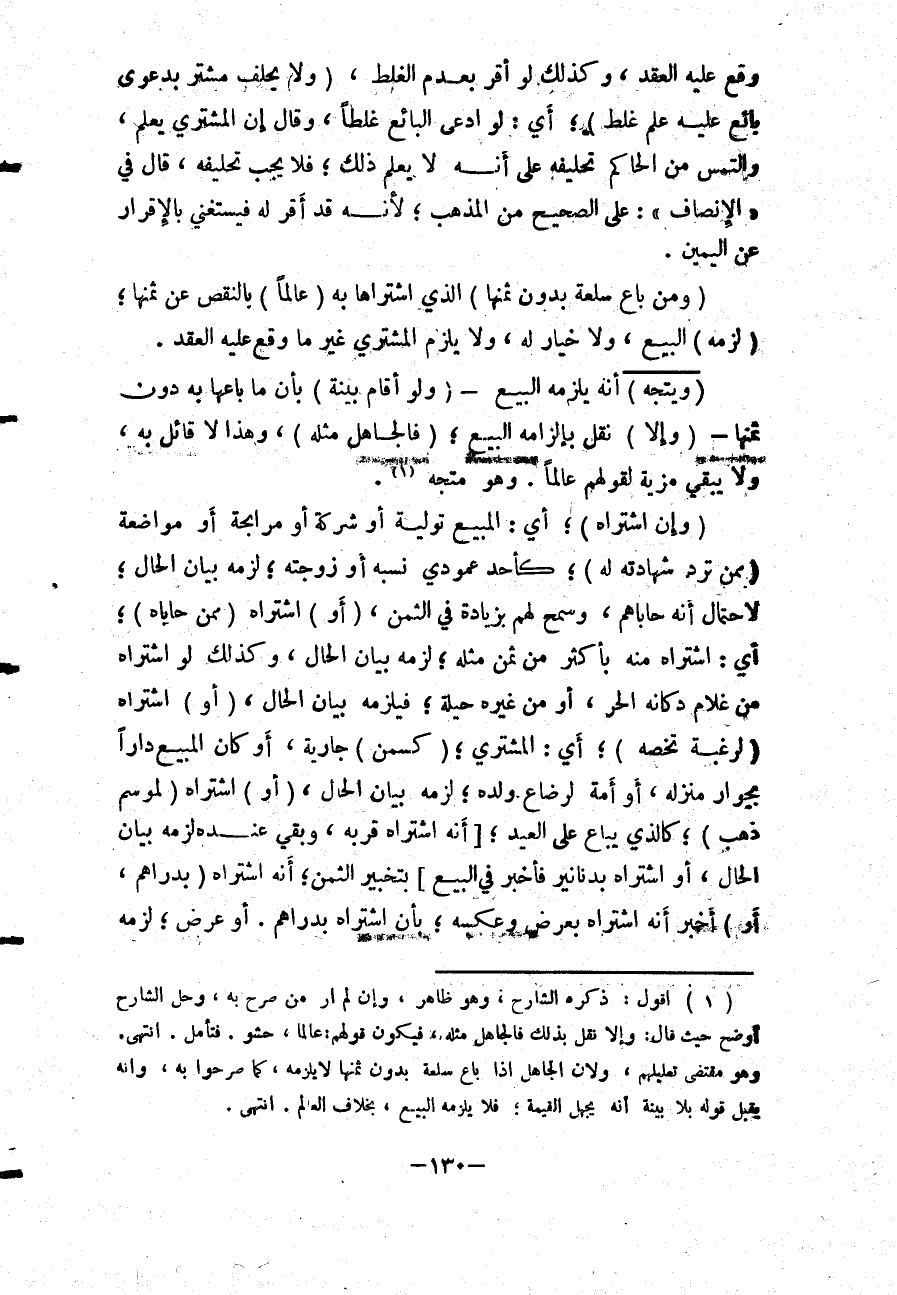 وقع عليه العقد ، وكذلك لو أقر بعدم الغلط ، ( ولا يحلف مشتر بدعوى
بائع عليه علم غلط ) ؛ أي : لو ادعى البائع غلطاً ، وقال إن المشتري يعلم ،
والتمس من الحاكم تحليفه على أنه لا يعلم ذلك ؛ فلا يجب تحليفه ، قال في
« الإنصاف » : على الصحيح من المذهب ؛ لأنه قد أقر له فيستغني بالإقرار
عن اليمين .
( ومن باع سلعة بدون ثمنها ) الذي اشتراها به ( عالماً ) بالنقص عن ثمنها ؛
( لزمه ) البيع ، ولا خيار له ، ولا يلزم المشتري غير ما وقع عليه العقد .
( ويتجه ) أنه يلزمه البيع – ( ولو أقام بينة ) بأن ما باعها به دون
ثمنها – ( وإلا ) نقل بإلزامه البيع ؛ ( فالجاهل مثله ) ، وهذا لا قائل به ،
ولا يبقي مزية لقولهم عالماً . وهو متجه (١) .
( وإن اشتراه ) ؛ أي : المبيع تولية أو شركة أو مرابحة أو مواضعة
( بمن ترد شهادته له ) ؛ كأحد عمودي نسبه أو زوجته ؛ لزمه بيان الحال ؛
لاحتمال أنه حاباهم ، وسمح لهم بزيادة في الثمن ، ( أو ) اشتراه ( ممن حاباه ) ؛
أي : اشتراه منه بأكثر من ثمن مثله ؛ لزمه بيان الحال ، وكذلك لو اشتراه
من غلام دكانه الحر ، أو من غيره حيلة ؛ فيلزمه بيان الحال ، ( أو ) اشتراه
( لرغبة تخصه ) ؛ أي : المشتري ؛ ( كسمن ) جارية ، أو كان المبيع داراً
بجوار منزله ، أو أمة لرضاع ولده ؛ لزمه بيان الحال ، ( أو ) اشتراه ( لموسم
ذهب ) ؛ كالذي يباع على العيد ؛ [ أنه اشتراه قربه ، وبقي عنده لزمه بيان
الحال ، أو اشتراه بدنانير فأخبر في البيع ] بتخبير الثمن ؛ أنه اشتراه ( بدراهم ،
أو ) أخبر أنه اشتراه بعرض وعكسه ؛ بأن اشتراه بدراهم . أو عرض ؛ لزمه
( ١ ) اقول : ذكره الشارح ، وهو ظاهر ، وإن لم ار من صرح به ، وحل الشارح
أوضح حيث قال : وإلا نقل بذلك فالجاهل مثله ، فيكون قولهم : عالما ، حشو . فتأمل . انتهى .
وهو مقتضى تعليلهم ، ولان الجاهل اذا باع سلعة بدون ثمنها لايلزمه ، كما صرحوا به ، وانه
يقبل قوله بلا بينة أنه يجهل القيمة ؛ فلا يلزمه البيع ، بخلاف العالم . انتهى .
–١٣٠–